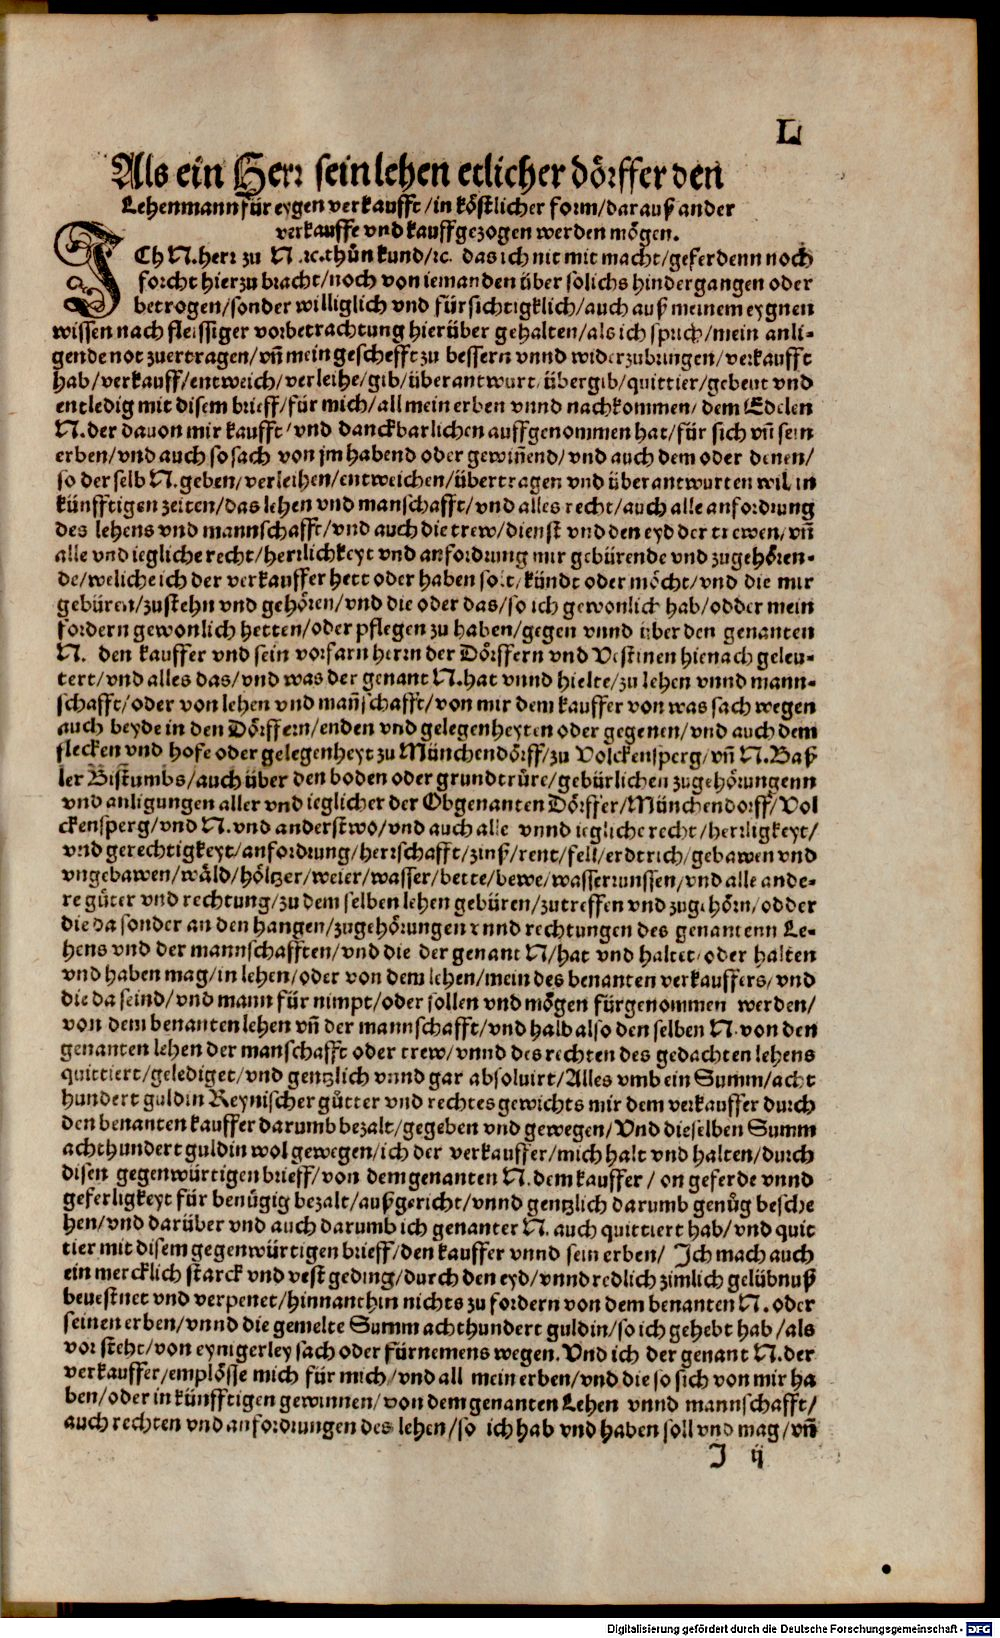 L
Als ein Herr sein lehen etlicher dörffer den
Lehenmann für eygen verkaufft/in köstlicher form/darauß ander
verkauffe vnd kauff gezogen werden mögen.
JCh N. herr zu N. ꝛc. thůn kund/ꝛc. das ich nit mit macht/geferdenn noch
forcht hierzu bracht/noch von iemanden über solichs hindergangen oder
betrogen/sonder williglich vnd fürsichtigklich/auch auß meinem eygnen
wissen nach fleissiger vorbetrachtung hierüber gehalten/als ich sprich/mein anli-
gende not zuertragen/vñ mein geschefft zu bessern vnnd widerzubringen/verkaufft
hab/verkauff/entweich/verleihe/gib/überantwurt/übergib/quittier/gebeut vnd
entledig mit disem brieff/für mich/all mein erben vnnd nachkommen/dem Edelen
N. der dauon mir kaufft/vnd danckbarlichen auffgenommen hat/für sich vñ sein
erben/vnd auch so sach von jm habend oder gewiñend/vnd auch dem oder denen/
so der selb N. geben/verleihen/entweichen/übertragen vnd überantwurten wil in
künfftigen zeiten/das lehen vnd manschafft/vnd alles recht/auch alle anfordrung
des lehens vnd mannschafft/vnd auch die trew/dienst vnd den eyd der trewen/vñ
alle vnd iegliche recht/herrlichkeyt vnd anfordrung mir gebürende vnd zugehören-
de/weliche ich der verkauffer hett oder haben solt/kündt oder möcht/vnd die mir
gebüren/zustehn vnd gehören/vnd die oder das/so ich gewonlich hab/odder mein
fordern gewonlich hetten/oder pflegen zu haben/gegen vnnd über den genanten
N. den kauffer vnd sein vorfarn herrn der Dörffern vnd Vestinen hienach geleu-
tert/vnd alles das/vnd was der genant N. hat vnnd hielte/zu lehen vnnd mann-
schafft/oder von lehen vnd mañschafft/von mir dem kauffer von was sach wegen
auch beyde in den Dörffern/enden vnd gelegenheyten oder gegenen/vnd auch dem
flecken vnd hofe oder gelegenheyt zu Münchendörff/zu Volckensperg/vñ N. Baß
ler Bistumbs/auch über den boden oder grundtrůre/gebürlichen zugehörungenn
vnd anligungen aller vnd ieglicher der Obgenanten Dörffer/Münchendorff/Vol
ckensperg/vnd N. vnd anderstwo/vnd auch alle vnnd iegliche recht/herrligkeyt/
vnd gerechtigkeyt/anfordrung/herrschafft/zinß/rent/fell/erdtrich/gebawen vnd
vngebawen/wäld/höltzer/weier/wasser/bette/bewe/wasserrunssen/vnd alle ande-
re gůter vnd rechtung/zu dem selben lehen gebüren/zutreffen vnd zugehörn/odder
die da sonder an den hangen/zugehörungen vnnd rechtungen des genantenn Le-
hens vnd der mannschafften/vnd die der genant N/hat vnd haltet/oder halten
vnd haben mag/in lehen/oder von dem lehen/mein des benanten verkauffers/vnd
die da seind/vnd mann für nimpt/oder sollen vnd mögen fürgenommen werden/
von dem benanten lehen vñ der mannschafft/vnd halb also den selben N. von den
genanten lehen der manschafft oder trew/vnnd des rechten des gedachten lehens
quittiert/gelediget/vnd gentzlich vnnd gar absoluirt/Alles vmb ein Summ/acht
hundert guldin Reynischer gůtter vnd rechtes gewichts mir dem verkauffer durch
den benanten kauffer darumb bezalt/gegeben vnd gewegen/Vnd dieselben Summ
achthundert guldin wol gewegen/ich der verkauffer/mich halt vnd halten/durch
disen gegenwürtigen brieff/von dem genanten N. dem kauffer/on geferde vnnd
geferligkeyt für benůgig bezalt/außgericht/vnnd gentzlich darumb genůg besche
hen/vnd darüber vnd auch darumb ich genanter N. auch quittiert hab/vnd quit
tier mit disem gegenwürtigen brieff/den kauffer vnnd sein erben/ Jch mach auch
ein mercklich starck vnd vest geding/durch den eyd/vnnd redlich zimlich gelübnuß
beuestnet vnd verpenet/hinnanthin nichts zu fordern von dem benanten N. oder
seinen erben/vnnd die gemelte Summ achthundert guldin/so ich gehebt hab/als
vor steht/von eynigerley sach oder fürnemens wegen. Vnd ich der genant N. der
verkauffer/emplösse mich für mich/vnd all mein erben/vnd die so sich von mir ha
ben/oder in künfftigen gewinnen/von dem genanten Lehen vnnd mannschafft/
auch rechten vnd anfordrungen des lehen/so ich hab vnd haben soll vnd mag/vñ
J ij
Digitalisierung gefördert durch die Deutsche Forschungsgemeinschaft - DFG